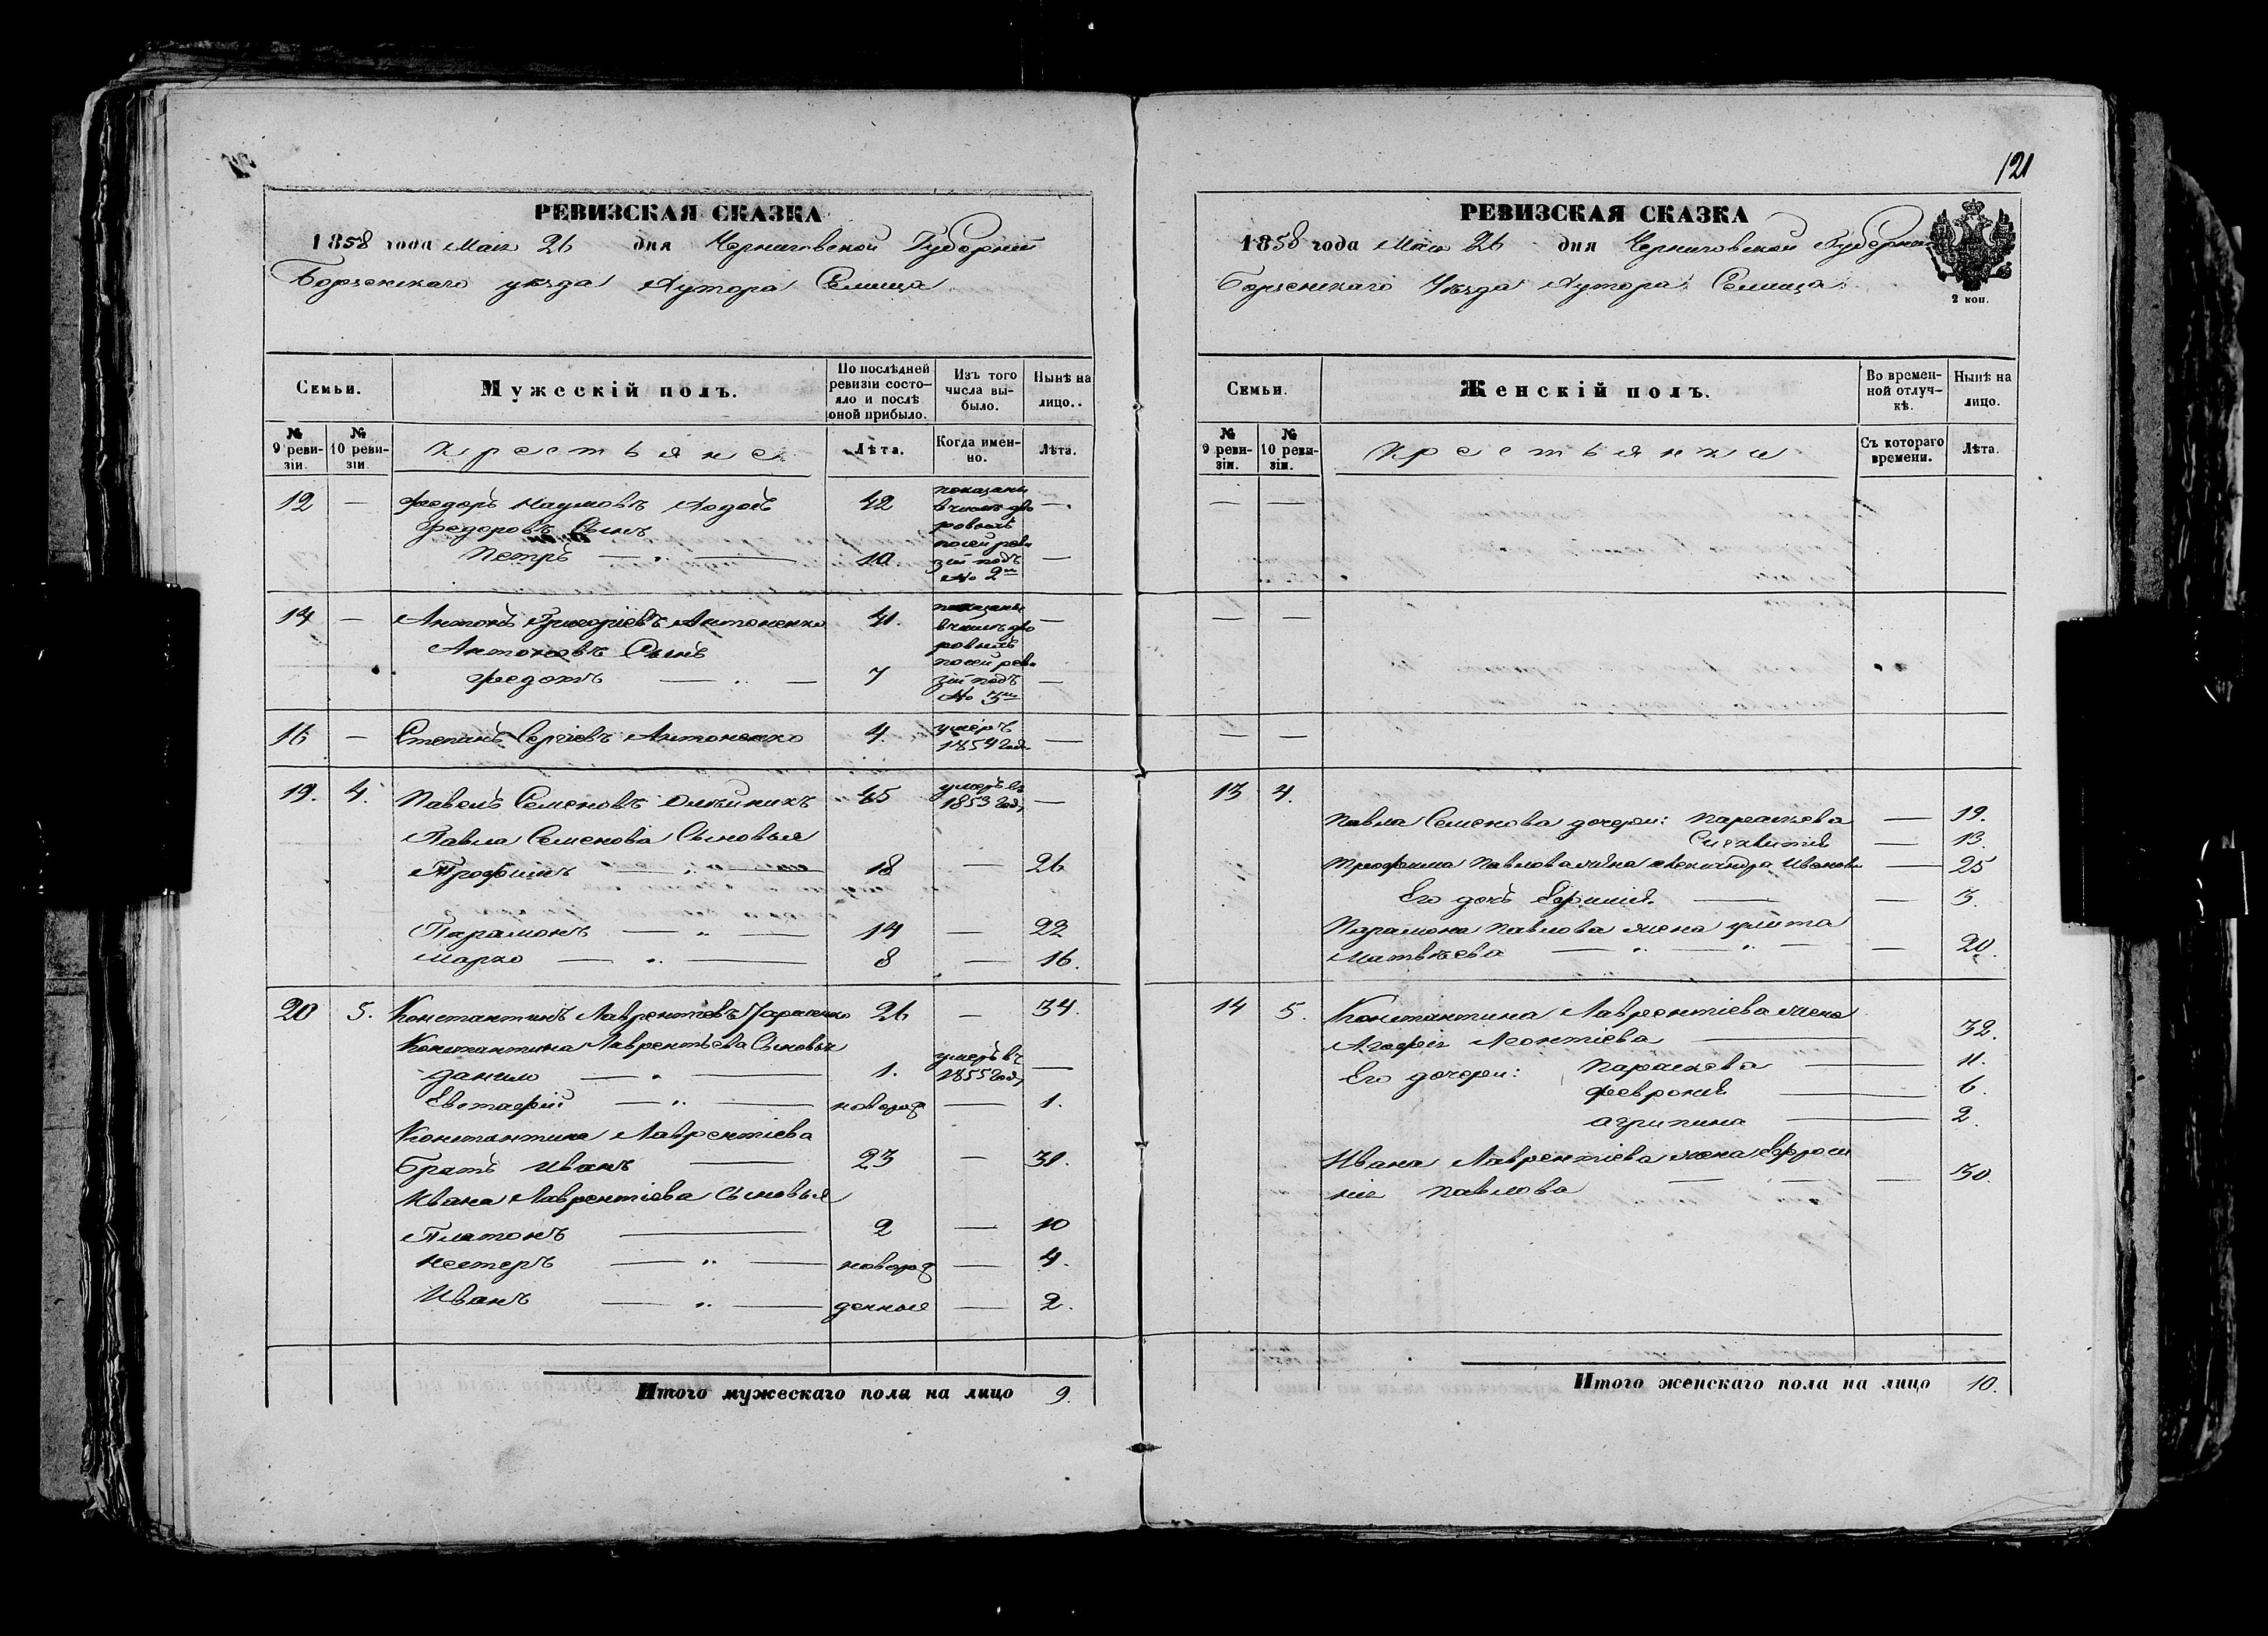 121
РЕВИЗСКАЯ СКАЗКА
1858 года Мая 26 дня Черниговской Губерніи
Борзенскаго уѣзда Хутора Селища
Семьи.
Мужескій полъ.
По послѣдней ревизіи состояло и послѣ оной прибыло.
Изъ того числа выбыло.
Нынѣ на лицо.
№ 9 ревизіи.
№ 10 ревизіи.
Крестьяне
Лѣта.
Когда именно.
Лѣта.
12 — Федоръ Наумовъ 42 показаны —
Федоровъ Сынъ в числѣ дворовыхъ
Петръ — „ — 10 посей ревизіи подъ № 2м —
14 — Антонъ Григоріевъ Антоненко 41. показаны —
Антоновъ Сынъ в числѣ дворовыхъ
Федотъ — „ — 7 посей ревизіи подъ № 3м —
16 — Степанъ Сергіевъ Антоненко 4 умеръ 1854 год. —
19. 4. Павелъ Семеновъ Олѣйникъ 45 умеръ въ 1853 год, —
Павла Семенова Сыновья
Трофимъ — „ — 18 — 26
Парамонъ — „ — 14 — 22
Марко — „ — 8 — 16.
20 5. Константинъ Лаврентіевъ Тарасенко 26 — 34.
Константина Лаврентьева Сыновья
Данило — „ — 1. умеръ въ 1855 год, —
Евстафій — „ — новорож — 1.
Константина Лаврентіева
Братъ Иванъ — 23 — 31.
Ивана Лаврентіева Сыновья
Платонъ — 2 — 10
Нестеръ — „ — новорож — 4.
Иванъ — „ — денные — 2.
Итого мужескаго пола на лицо 9.
РЕВИЗСКАЯ СКАЗКА
1858 года Мая 26 дня Черниговской Губерніи
Борзенскаго Уѣзда Хутора Селища
2 коп.
Семьи.
Женскій полъ.
Во временной отлучкѣ.
Нынѣ на лицо.
№ 9 ревизіи.
№ 10 ревизіи.
Крестьянки
Съ котораго времени.
Лѣта.
— —
— —
— —
13 4.
Павла Семенова дочери: Параскева — 19.
— 13.
Трофима Павлова жена Александра Иванова — 25
Его дочь — — 3.
Парамона Павлова жена Улита
Матвѣева — „ — „ — — 20.
14 5. Константина Лаврентіева жена
Агафія Леонтіева — 32.
Его дочери: Параскева — 11.
Феврония — 6.
Агрипина — 2.
Ивана Лаврентіева жена Ефроси
нія Павлова — — — 30.
Итого женскаго пола на лицо 10.